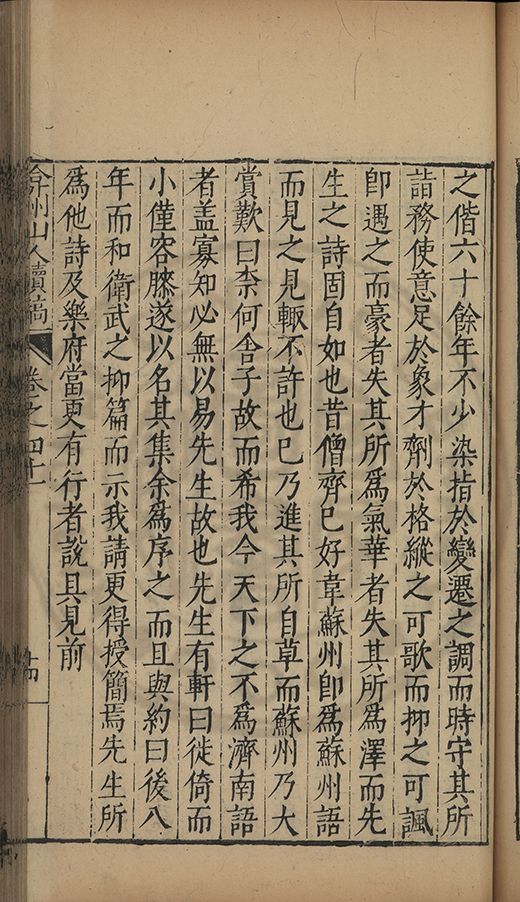 之偕六十餘年不少染指於變遷之調而時守其所
詣務使意足於象才劑於格縱之可歌而抑之可諷
卽遇之而豪者失其所爲氣華者失其所爲澤而先
生之詩固自如也昔僧齊已好韋蘇州卽爲蘇州語
而見之見輙不許也已乃進其所自草而蘇州乃大
賞歎曰柰何舎子故而希我今天下之不爲濟南語
者盖寡知必無以易先生故也先生有軒曰徙倚而
小僅容膝遂以名其集余爲序之而且與約曰後八
年而和衛武之抑篇而示我請更得授簡焉先生所
爲他詩及樂府當更有行者說具見前
弇州山人續稿 卷之四十一 十四